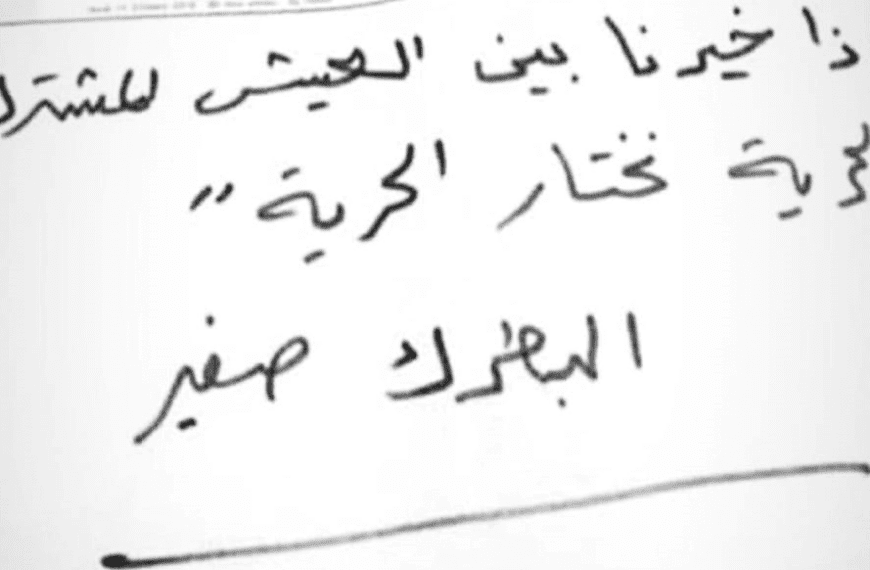 ذا خيرنا بين العيش المشترك
لحرية نختار الحرية "
البطرك صفير